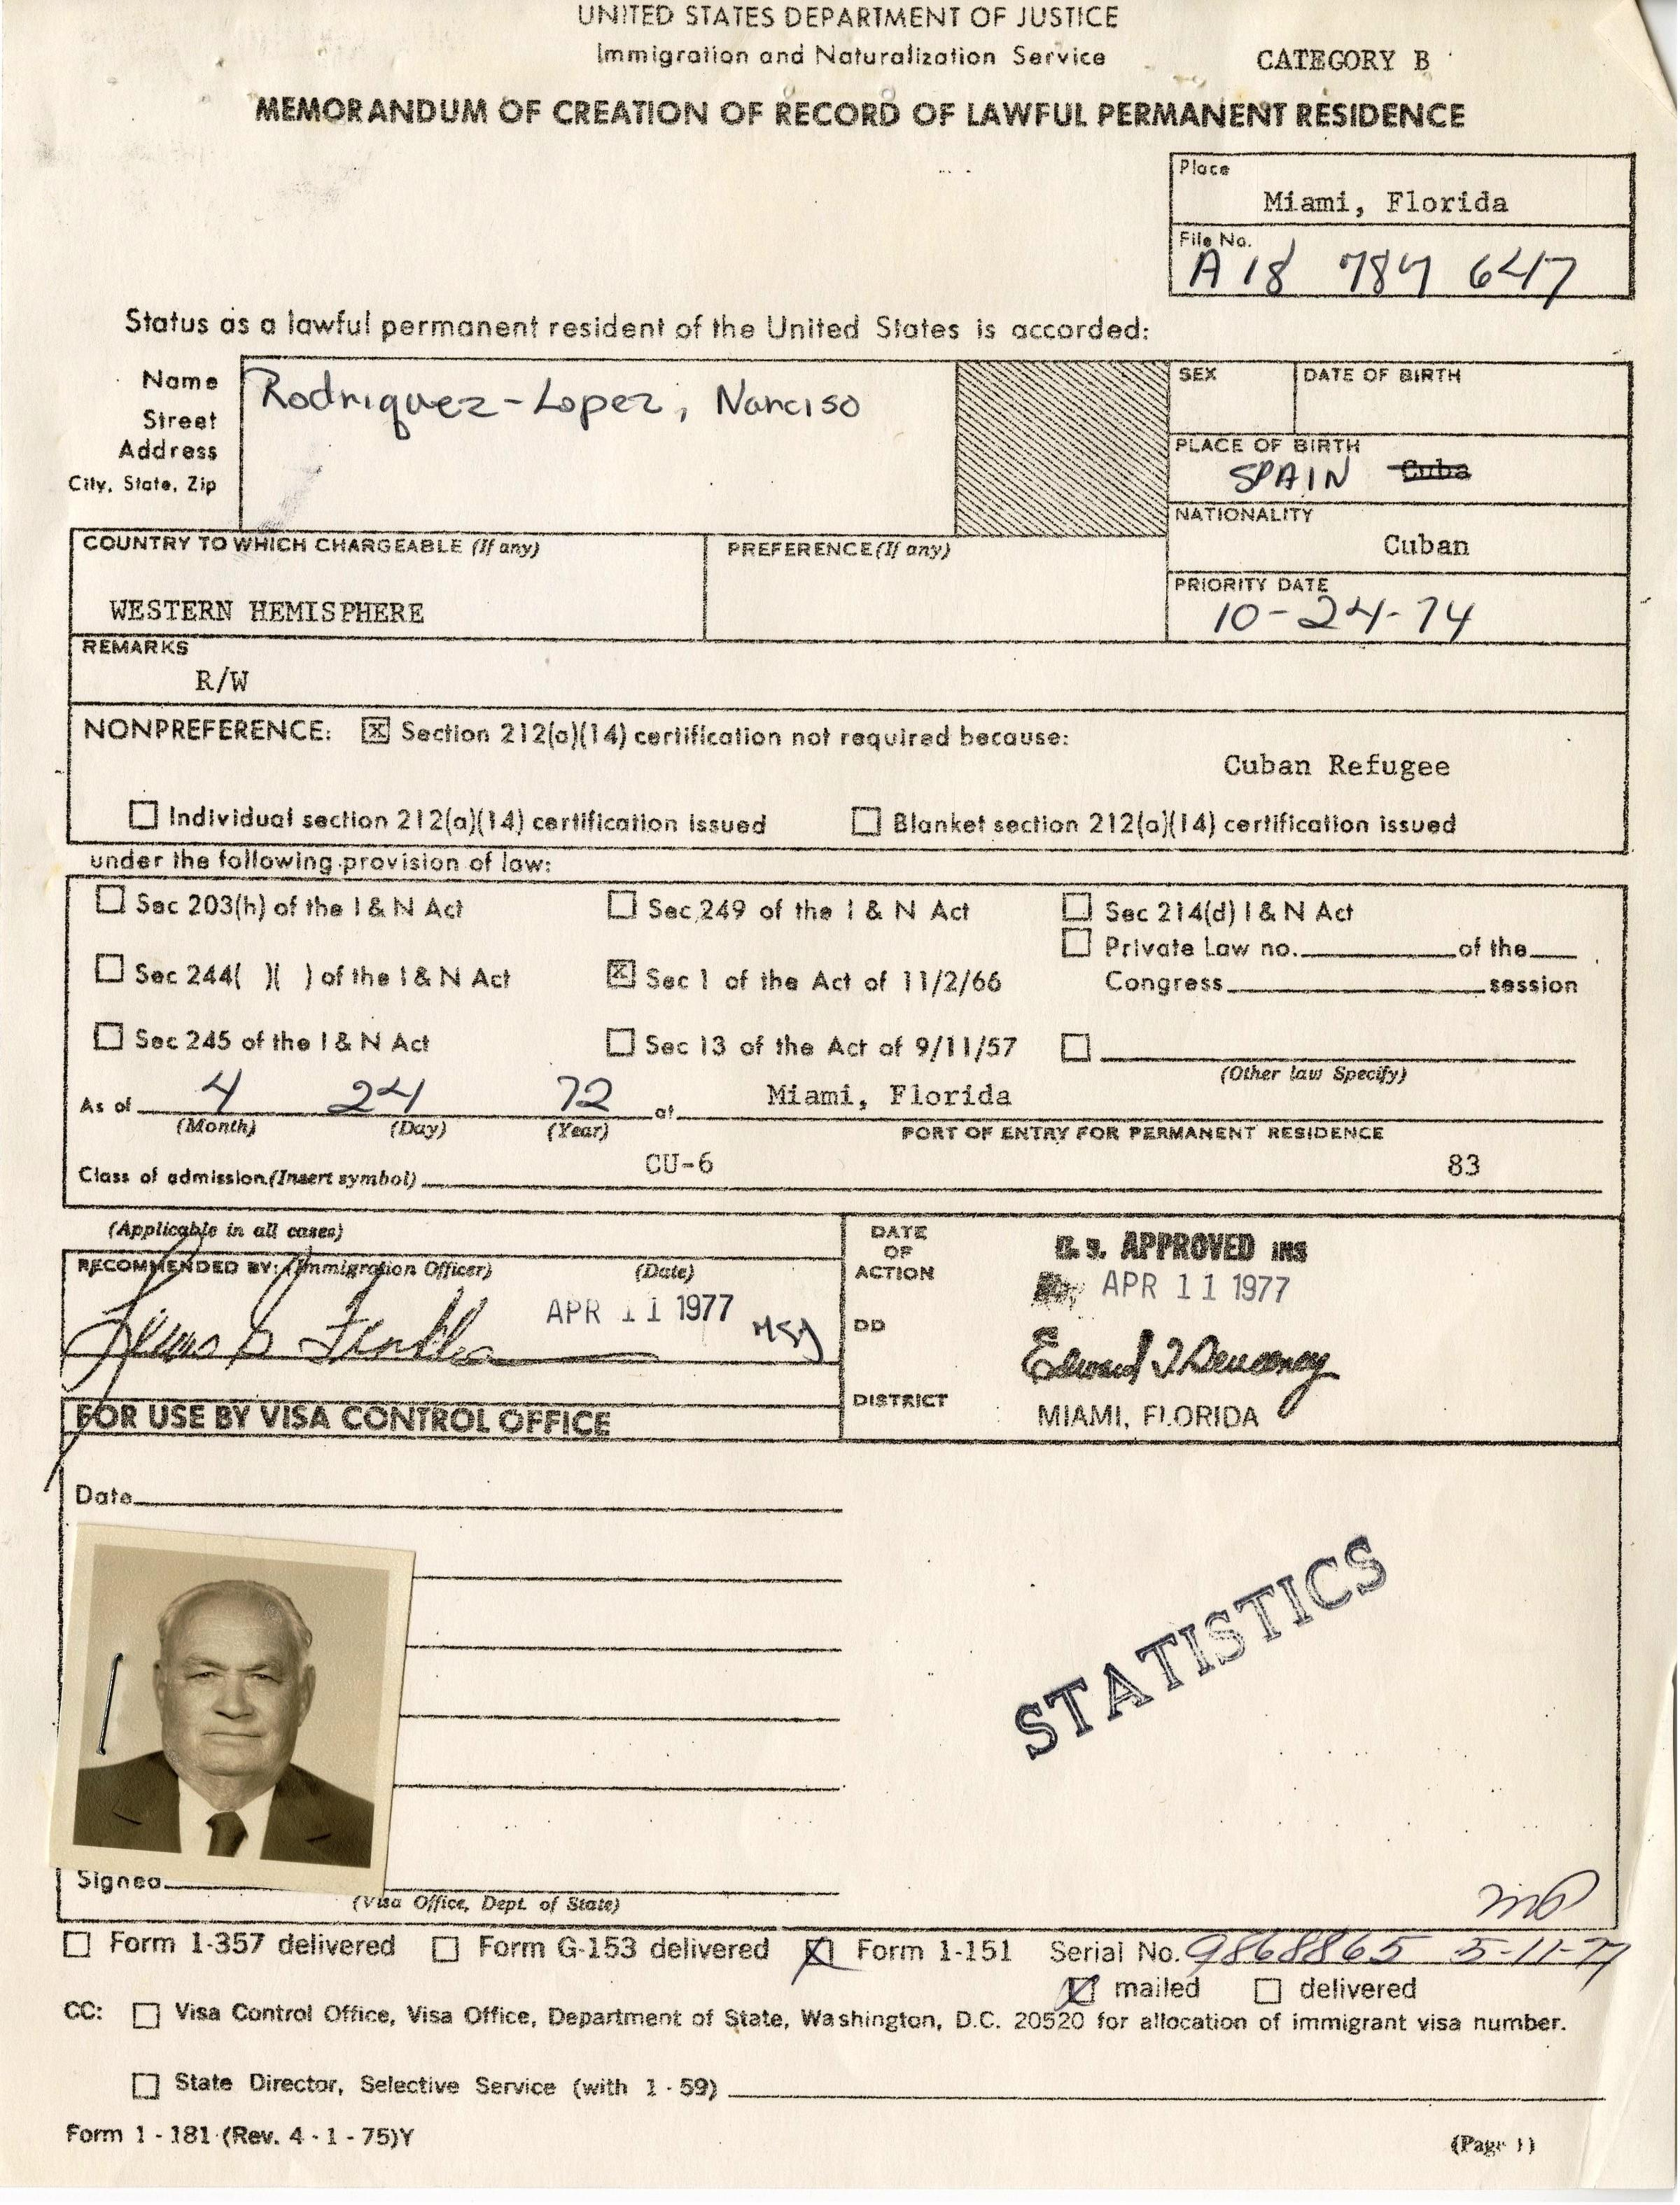 UNITED STATES DEPARTMENT OF JUSTICE
Immigration and Naturalization Service
CATEGORY B
MEMORANDUM OF CREATION OF RECORD OF LAWFUL PERMANENT RESIDENCE
Place
Miami, Florida
File No.
A18 784 647
Status as a lawful permanent resident of the United States is accorded:
Name
Street
Address
City, State, Zip
Rodriquez-Lopez, Narciso
SEX
DATE OF BIRTH
PLACE OF BIRTH
SPAIN Cuba
NATIONALITY
Cuban
COUNTRY TO WHICH CHARGEABLE (If any)
WESTERN HEMISPHERE
PREFERENCE (If any)
PRIORITY DATE
10-24-74
REMARKS
R/W
NONPREFERENCE: X Section 212(a)(14) certification not required because:
Cuban Refugee
Individual section 212(a)(14) certification issued
Blanket section 212(a)(14) certification issued
under the following provision of law:
Sec 203(h) of the I & N Act
Sec 249 of the I & N Act
Sec 214(d) I & N Act
Private Law no. of the
Sec 244( )( ) of the I & N Act
X Sec 1 of the Act of 11/2/66
Congress session
Sec 245 of the I & N Act
Sec 13 of the Act of 9/11/57
(Other law Specify)
As of 4 24 72 at Miami, Florida
(Month) (Day) (Year)
PORT OF ENTRY FOR PERMANENT RESIDENCE
Class of admission (Insert symbol) CU-6 83
(Applicable in all cases)
RECOMMENDED BY: (Immigration Officer) (Date)
APR 11 1977
DATE
OF
ACTION
U.S. APPROVED INS
APR 11 1977
DD
DISTRICT
MIAMI, FLORIDA
FOR USE BY VISA CONTROL OFFICE
Date
STATISTICS
Signed
(Visa Office, Dept. of State)
Form I-357 delivered
Form G-153 delivered
X Form I-151 Serial No. 9868865 5-11-77
X mailed
delivered
CC: Visa Control Office, Visa Office, Department of State, Washington, D.C. 20520 for allocation of immigrant visa number.
State Director, Selective Service (with 1-59)
Form 1-181 (Rev. 4-1-75)Y
(Page 1)